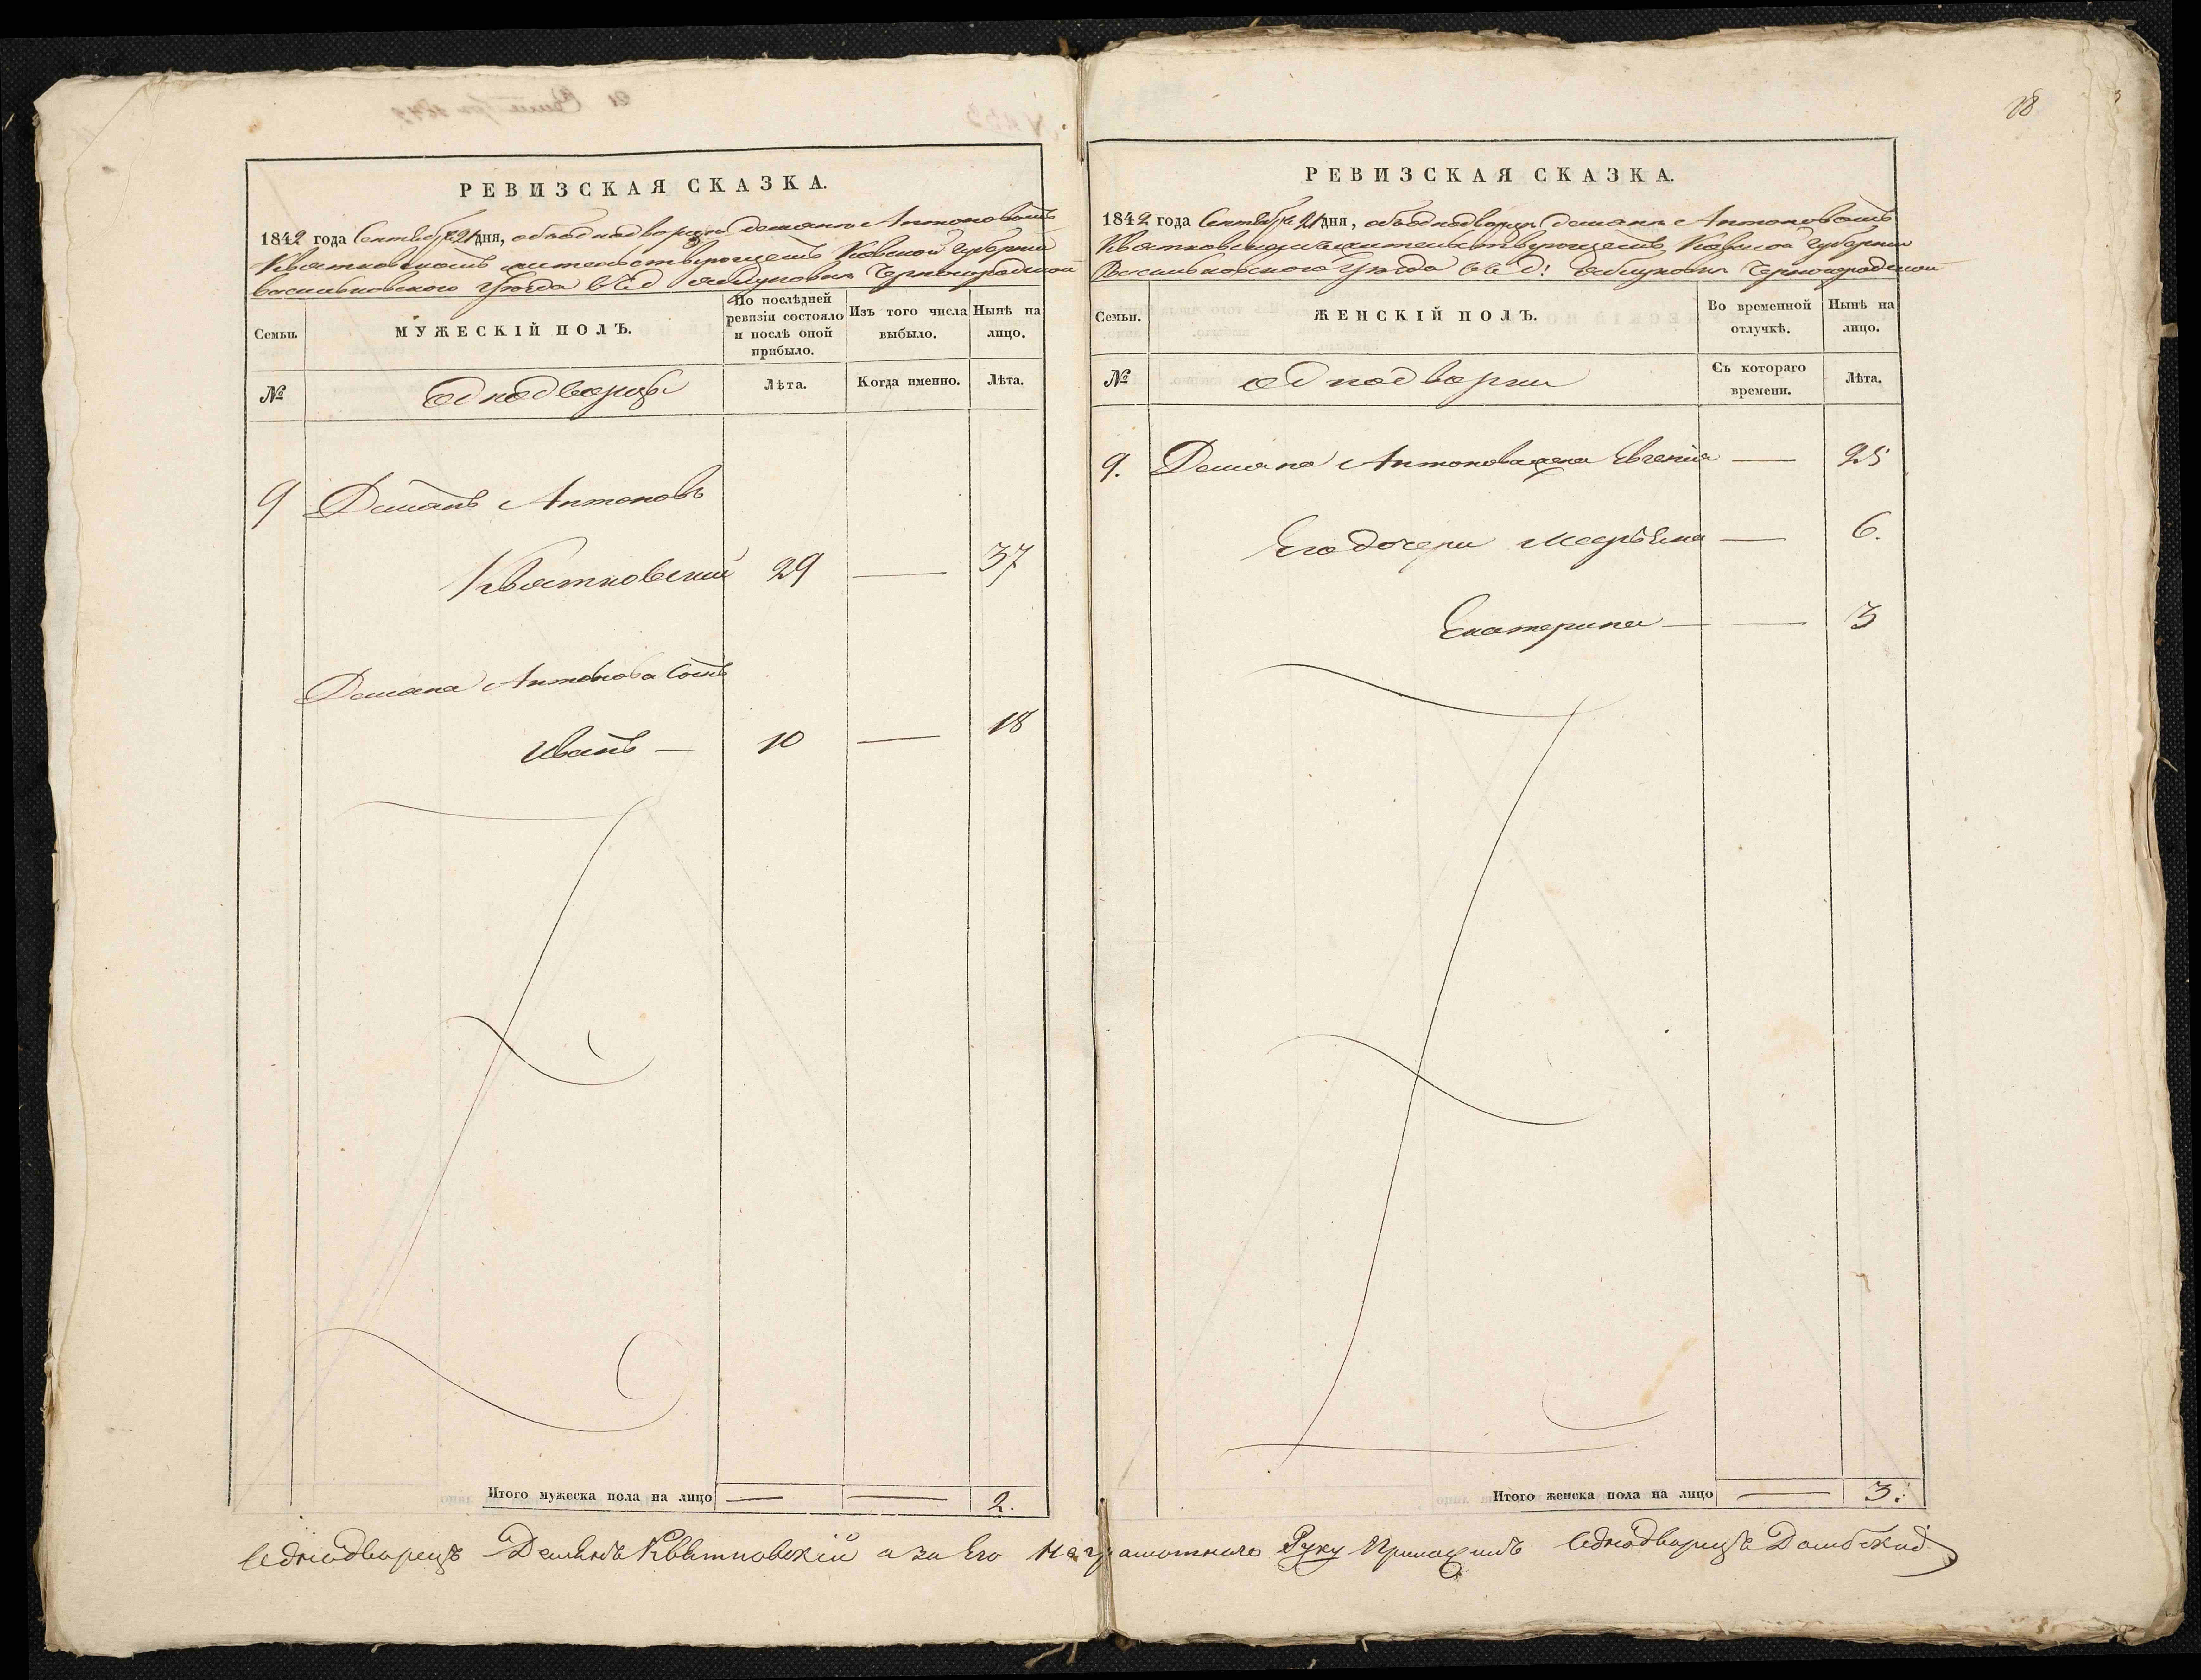 РЕВИЗСКАЯ СКАЗКА.
1842 года Сентября 21 дня, объ однодворцѣ Демьянѣ Антоновомъ
Квятковскомъ жительствующемъ Кіевской Губерніи
Васильковскаго Уѣзда
Семьи.
МУЖЕСКІЙ ПОЛЪ.
По послѣдней ревизіи состояло и послѣ оной прибыло.
Изъ того числа выбыло.
Нынѣ на лицо.
№
Однодворцы
Лѣта.
Когда именно.
Лѣта.
9 Демянъ Антоновъ
Квятковский 29 — 37
Демяна Антонова Сынъ
Иванъ — 10 — 18
Итого мужеска пола на лицо — — 2.
18
РЕВИЗСКАЯ СКАЗКА.
1842 года Сентября 21 дня, объ однодворцѣ Демянѣ Антоновомъ
Квятковскомъ жительствующемъ Кіевской Губерніи
Васильковскаго Уѣзда
Семьи.
ЖЕНСКІЙ ПОЛЪ.
Во временной отлучкѣ.
Нынѣ на лицо.
№
однодворки
Съ котораго времени.
Лѣта.
9. Демяна Антонова жена Евгенія — 25
Его дочери — 6.
Екатерина — — 3
Итого женска пола на лицо — 3.
Однодворецъ Демьянъ Квятковскій а за Его Неграмотнаго Руку Приложилъ Однодворецъ